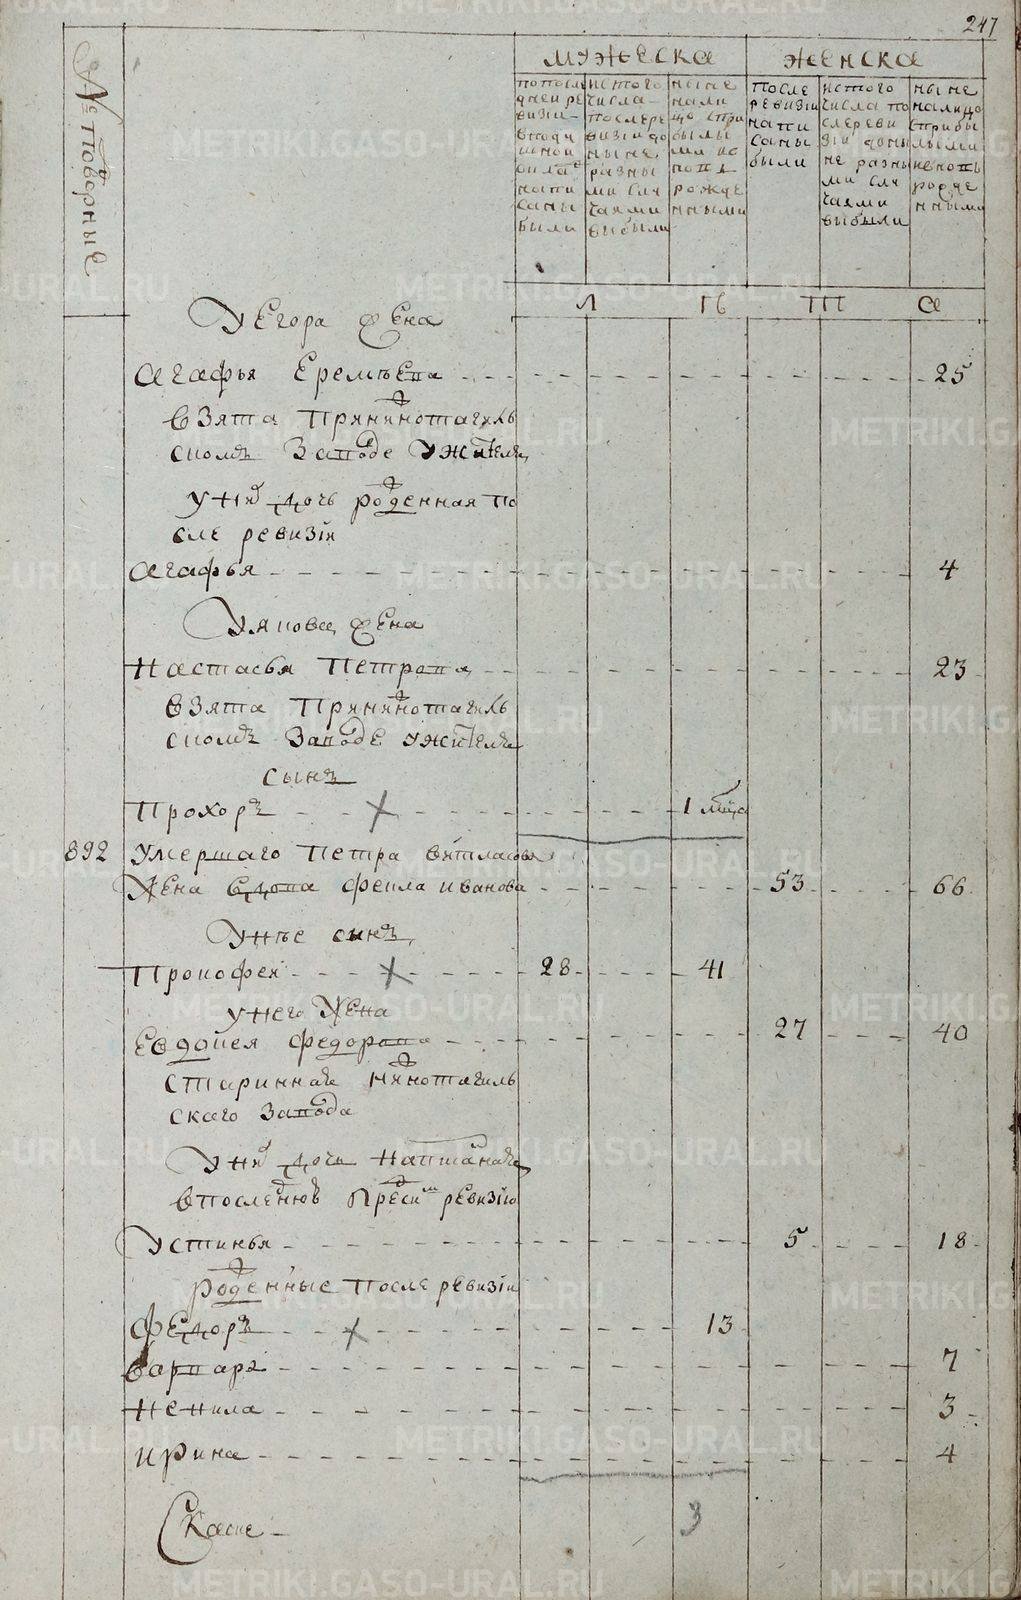 247
№ подворные
мужеска
женска
по последней ревизии в подушной оклад написаны были
ис того числа после ревизии до ныне разными случаями выбыли
ныне на лицо с прибылыми и вновь рожденными
после ревизии написаны были
ис того числа по сле ревизии до ныне разными случаями выбыли
ныне на лицо с прибылыми и вновь рожденными
л ть т а
У Егора жена
Агафья Еремеева 25
взята при нижнотагиль
скомъ заводе у жителя
у ней дочь рожденная по
сле ревизiи
Агафья 4
У жена
Настасья Петрова 23
взята при нижнотагиль
скомъ заводе у жителя
сынъ
Прохоръ 1 мца
892 Умершаго Петра
Жена вдова Фекла Иванова 53 66
У нее сынъ
Прокофей 28 41
у него жена
Евдокея Федорова 27 40
старинная нижнотагиль
скаго завода
У ней дочь написанная
в последнюю пред сим ревизiю
Устинья 5 18
рожденные после ревизiи
Федоръ 13
Варвара 7
Ненила 3
Ирина 4
3